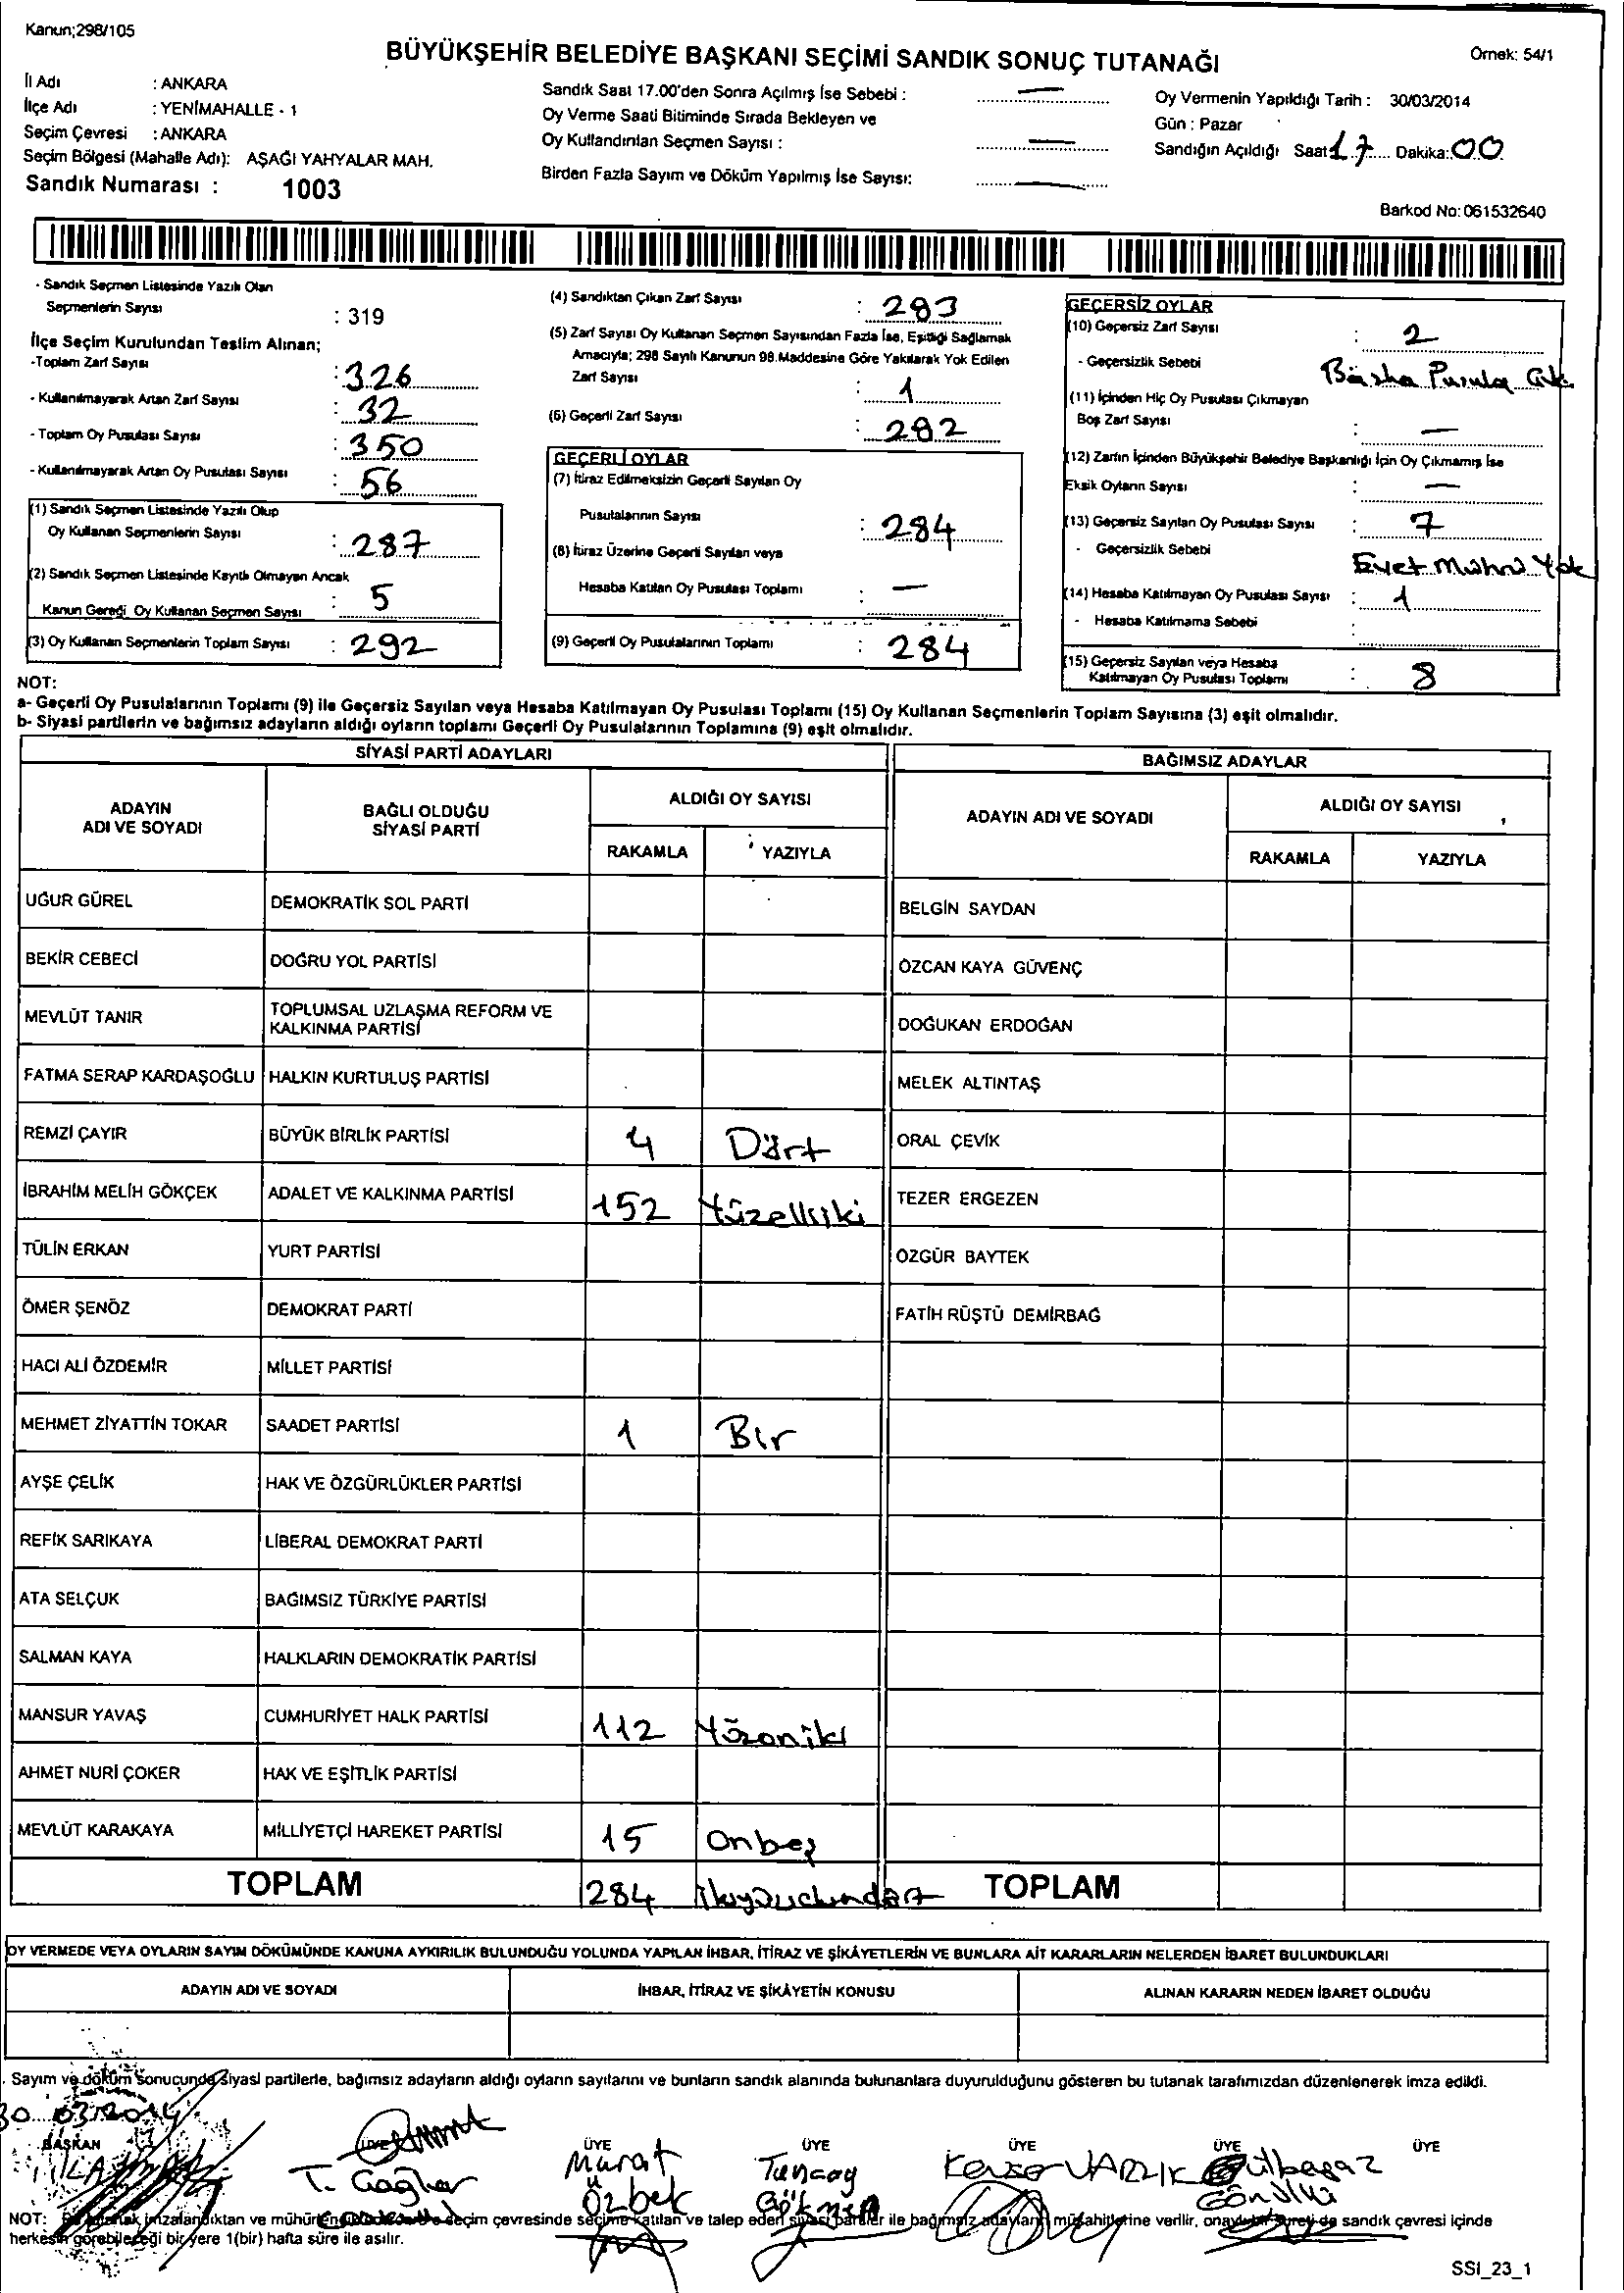 Kanun;298/105
BÜYÜKŞEHİR BELEDİYE BAŞKANI SEÇİMİ SANDIK SONUÇ TUTANAĞI
Örnek: 54/1
İl Adı : ANKARA
İlçe Adı : YENİMAHALLE - 1
Seçim Çevresi : ANKARA
Seçim Bölgesi (Mahalle Adı): AŞAĞI YAHYALAR MAH.
Sandık Numarası : 1003
Sandık Saat 17.00'den Sonra Açılmış İse Sebebi : —
Oy Verme Saati Bitiminde Sırada Bekleyen ve
Oy Kullandırılan Seçmen Sayısı : —
Birden Fazla Sayım ve Döküm Yapılmış İse Sayısı: —
Oy Vermenin Yapıldığı Tarih : 30/03/2014
Gün : Pazar
Sandığın Açıldığı Saat 17 Dakika: 00
Barkod No: 061532640
- Sandık Seçmen Listesinde Yazılı Olan
Seçmenlerin Sayısı : 319
İlçe Seçim Kurulundan Teslim Alınan;
-Toplam Zarf Sayısı : 326
- Kullanılmayarak Artan Zarf Sayısı : 32
- Toplam Oy Pusulası Sayısı : 350
- Kullanılmayarak Artan Oy Pusulası Sayısı : 56
(1) Sandık Seçmen Listesinde Yazılı Olup
Oy Kullanan Seçmenlerin Sayısı : 287
(2) Sandık Seçmen Listesinde Kayıtlı Olmayan Ancak
Kanun Gereği Oy Kullanan Seçmen Sayısı : 5
(3) Oy Kullanan Seçmenlerin Toplam Sayısı : 292
(4) Sandıktan Çıkan Zarf Sayısı : 283
(5) Zarf Sayısı Oy Kullanan Seçmen Sayısından Fazla İse, Eşitliği Sağlamak
Amacıyla; 298 Sayılı Kanunun 98.Maddesine Göre Yakılarak Yok Edilen
Zarf Sayısı : 1
(6) Geçerli Zarf Sayısı : 282
GEÇERLİ OYLAR
(7) İtiraz Edilmeksizin Geçerli Sayılan Oy
Pusulalarının Sayısı : 284
(8) İtiraz Üzerine Geçerli Sayılan veya
Hesaba Katılan Oy Pusulası Toplamı : —
(9) Geçerli Oy Pusulalarının Toplamı : 284
GEÇERSİZ OYLAR
(10) Geçersiz Zarf Sayısı : 2
- Geçersizlik Sebebi Başka Pusula
(11) İçinden Hiç Oy Pusulası Çıkmayan
Boş Zarf Sayısı : —
(12) Zarfın İçinden Büyükşehir Belediye Başkanlığı İçin Oy Çıkmamış İse
Eksik Oyların Sayısı : —
(13) Geçersiz Sayılan Oy Pusulası Sayısı : 7
- Geçersizlik Sebebi Evet Mührü Yok
(14) Hesaba Katılmayan Oy Pusulası Sayısı : 1
- Hesaba Katılmama Sebebi :
(15) Geçersiz Sayılan veya Hesaba
Katılmayan Oy Pusulası Toplamı : 8
NOT:
a- Geçerli Oy Pusulalarının Toplamı (9) ile Geçersiz Sayılan veya Hesaba Katılmayan Oy Pusulası Toplamı (15) Oy Kullanan Seçmenlerin Toplam Sayısına (3) eşit olmalıdır.
b- Siyasi partilerin ve bağımsız adayların aldığı oyların toplamı Geçerli Oy Pusulalarının Toplamına (9) eşit olmalıdır.
SİYASİ PARTİ ADAYLARI
ADAYIN ADI VE SOYADI BAĞLI OLDUĞU SİYASİ PARTİ ALDIĞI OY SAYISI
RAKAMLA YAZIYLA
UĞUR GÜREL DEMOKRATİK SOL PARTİ
BEKİR CEBECİ DOĞRU YOL PARTİSİ
MEVLÜT TANIR TOPLUMSAL UZLAŞMA REFORM VE
KALKINMA PARTİSİ
FATMA SERAP KARDAŞOĞLU HALKIN KURTULUŞ PARTİSİ
REMZİ ÇAYIR BÜYÜK BİRLİK PARTİSİ 4 Dört
İBRAHİM MELİH GÖKÇEK ADALET VE KALKINMA PARTİSİ 152 Yüzelliiki
TÜLİN ERKAN YURT PARTİSİ
ÖMER ŞENÖZ DEMOKRAT PARTİ
HACI ALİ ÖZDEMİR MİLLET PARTİSİ
MEHMET ZİYATTİN TOKAR SAADET PARTİSİ 1 Bir
AYŞE ÇELİK HAK VE ÖZGÜRLÜKLER PARTİSİ
REFİK SARIKAYA LİBERAL DEMOKRAT PARTİ
ATA SELÇUK BAĞIMSIZ TÜRKİYE PARTİSİ
SALMAN KAYA HALKLARIN DEMOKRATİK PARTİSİ
MANSUR YAVAŞ CUMHURİYET HALK PARTİSİ 112 Yüzoniki
AHMET NURİ ÇOKER HAK VE EŞİTLİK PARTİSİ
MEVLÜT KARAKAYA MİLLİYETÇİ HAREKET PARTİSİ 15 Onbeş
TOPLAM 284
BAĞIMSIZ ADAYLAR
ADAYIN ADI VE SOYADI ALDIĞI OY SAYISI
RAKAMLA YAZIYLA
BELGİN SAYDAN
ÖZCAN KAYA GÜVENÇ
DOĞUKAN ERDOĞAN
MELEK ALTINTAŞ
ORAL ÇEVİK
TEZER ERGEZEN
ÖZGÜR BAYTEK
FATİH RÜŞTÜ DEMİRBAĞ
TOPLAM
OY VERMEDE VEYA OYLARIN SAYIM DÖKÜMÜNDE KANUNA AYKIRILIK BULUNDUĞU YOLUNDA YAPILAN İHBAR, İTİRAZ VE ŞİKÂYETLERİN VE BUNLARA AİT KARARLARIN NELERDEN İBARET BULUNDUKLARI
ADAYIN ADI VE SOYADI İHBAR, İTİRAZ VE ŞİKÂYETİN KONUSU ALINAN KARARIN NEDEN İBARET OLDUĞU
Sayım ve döküm sonucunda siyasi partilerle, bağımsız adayların aldığı oyların sayılarını ve bunların sandık alanında bulunanlara duyurulduğunu gösteren bu tutanak tarafımızdan düzenlenerek imza edildi.
30.03.2014
BAŞKAN ÜYE ÜYE ÜYE ÜYE ÜYE ÜYE
T. Çağlar Murat Özbek Tuncay Gökmen VARLIK
NOT: imzalandıktan ve seçim çevresinde seçime katılan ve talep eden siyasi partiler ile bağımsız adayların müşahitlerine verilir, sandık çevresi içinde
herkesin görebileceği bir yere 1(bir) hafta süre ile asılır.
SSI_23_1